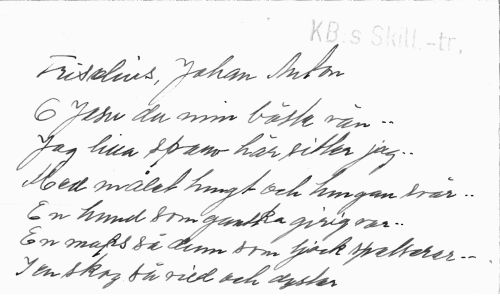 KB:s Skill.-tr.
Friselius, Johan Anton
O Jesu du min bäste vän --
Jag lilla sparv här sitter jag --
Med målet tungt och hungern svår --
En hund som ganska girig var --
En man så dum som tjock spatserar --
I en skog så vild och dyster